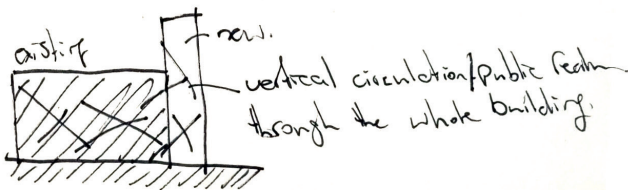 existing
new.
vertical circulation/public realm
through the whole building.